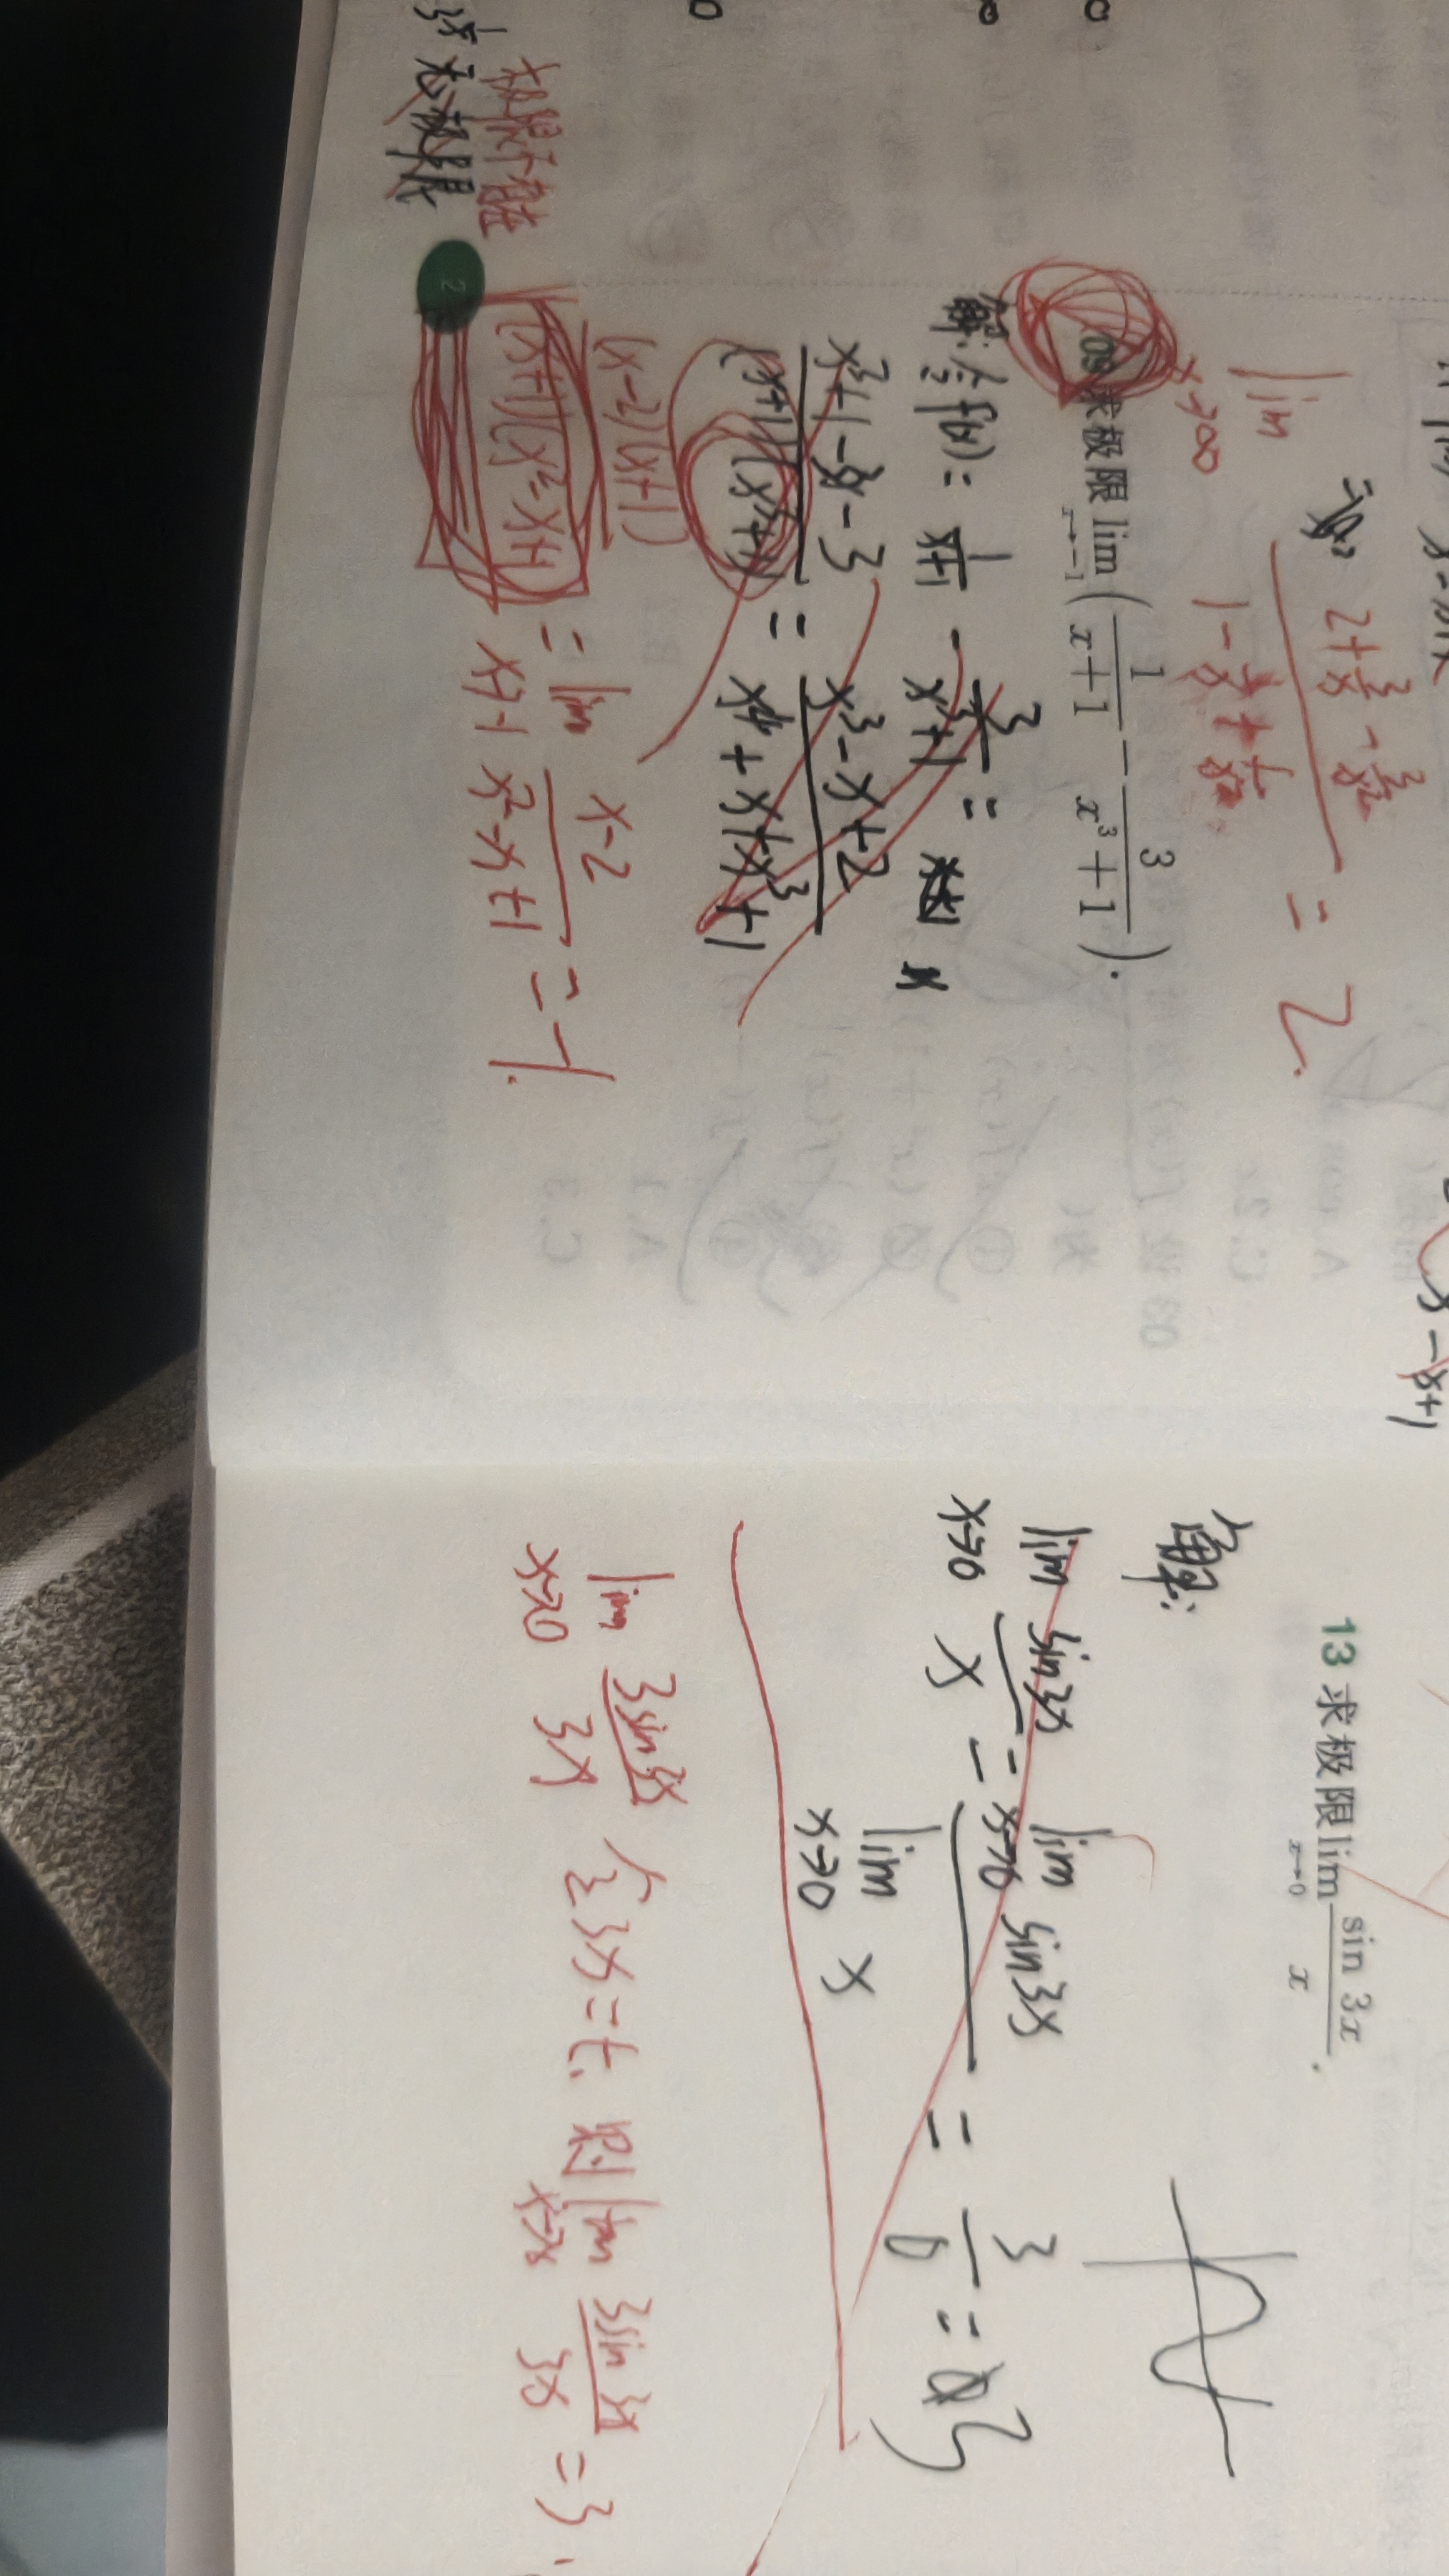 lim
x→∞
= 2.
09 求极限 lim x→-1 (1/(x+1) - 3/(x³+1)).
解: 令f(x) = 1/(x+1) - 3/(x³+1) =
(x³+1-3x-3)/((x+1)(x³+1)) = (x³-x+2)/(x⁴+x+x³+1)
(x-2)(x+1)/((x+1)(x²-x+1)) = lim x→-1 (x-2)/(x²-x+1) = -1.
极限不能
无极限
2
x-x+1
13 求极限 lim x→0 sin 3x/x.
解:
lim x→0 sin3x/x = lim x→0 sin3x / lim x→0 x = 3/0 = 3
lim x→0 3sin3x/3x 令3x=t, 则 lim 3sin3x/3x = 3.